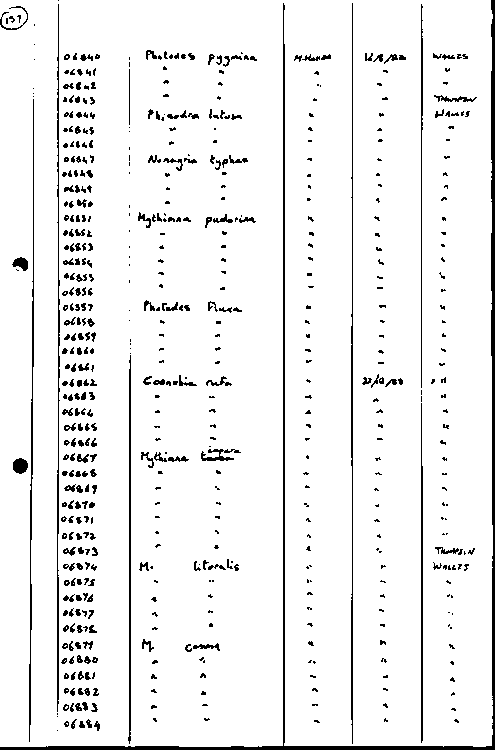 137
06840 Photedes pygmina 16/8/82 WALLIS
06841 " " " " "
06842 " " " " "
06843 " " " " THOMPSON
06844 Phragmatobia " " WALLIS
06845 " " " " "
06846 " " " " "
06847 Nonagria typhae " " "
06848 " " " " "
06849 " " " " "
06850 " " " " "
06851 Mythimna pudorina " " "
06852 " " " " "
06853 " " " " "
06854 " " " " "
06855 " " " " "
06856 " " " " "
06857 Photedes fluxa " " "
06858 " " " " "
06859 " " " " "
06860 " " " " "
06861 " " " " "
06862 Coenobia rufa " "
06863 " " " " "
06864 " " " " "
06865 " " " " "
06866 " " " " "
06867 Mythimna impura " " "
06868 " " " " "
06869 " " " " "
06870 " " " " "
06871 " " " " "
06872 " " " " "
06873 " " " " THOMPSON
06874 M. litoralis " " WALLIS
06875 " " " " "
06876 " " " " "
06877 " " " " "
06878 " " " " "
06879 M. comma " " "
06880 " " " " "
06881 " " " " "
06882 " " " " "
06883 " " " " "
06884 " " " " "